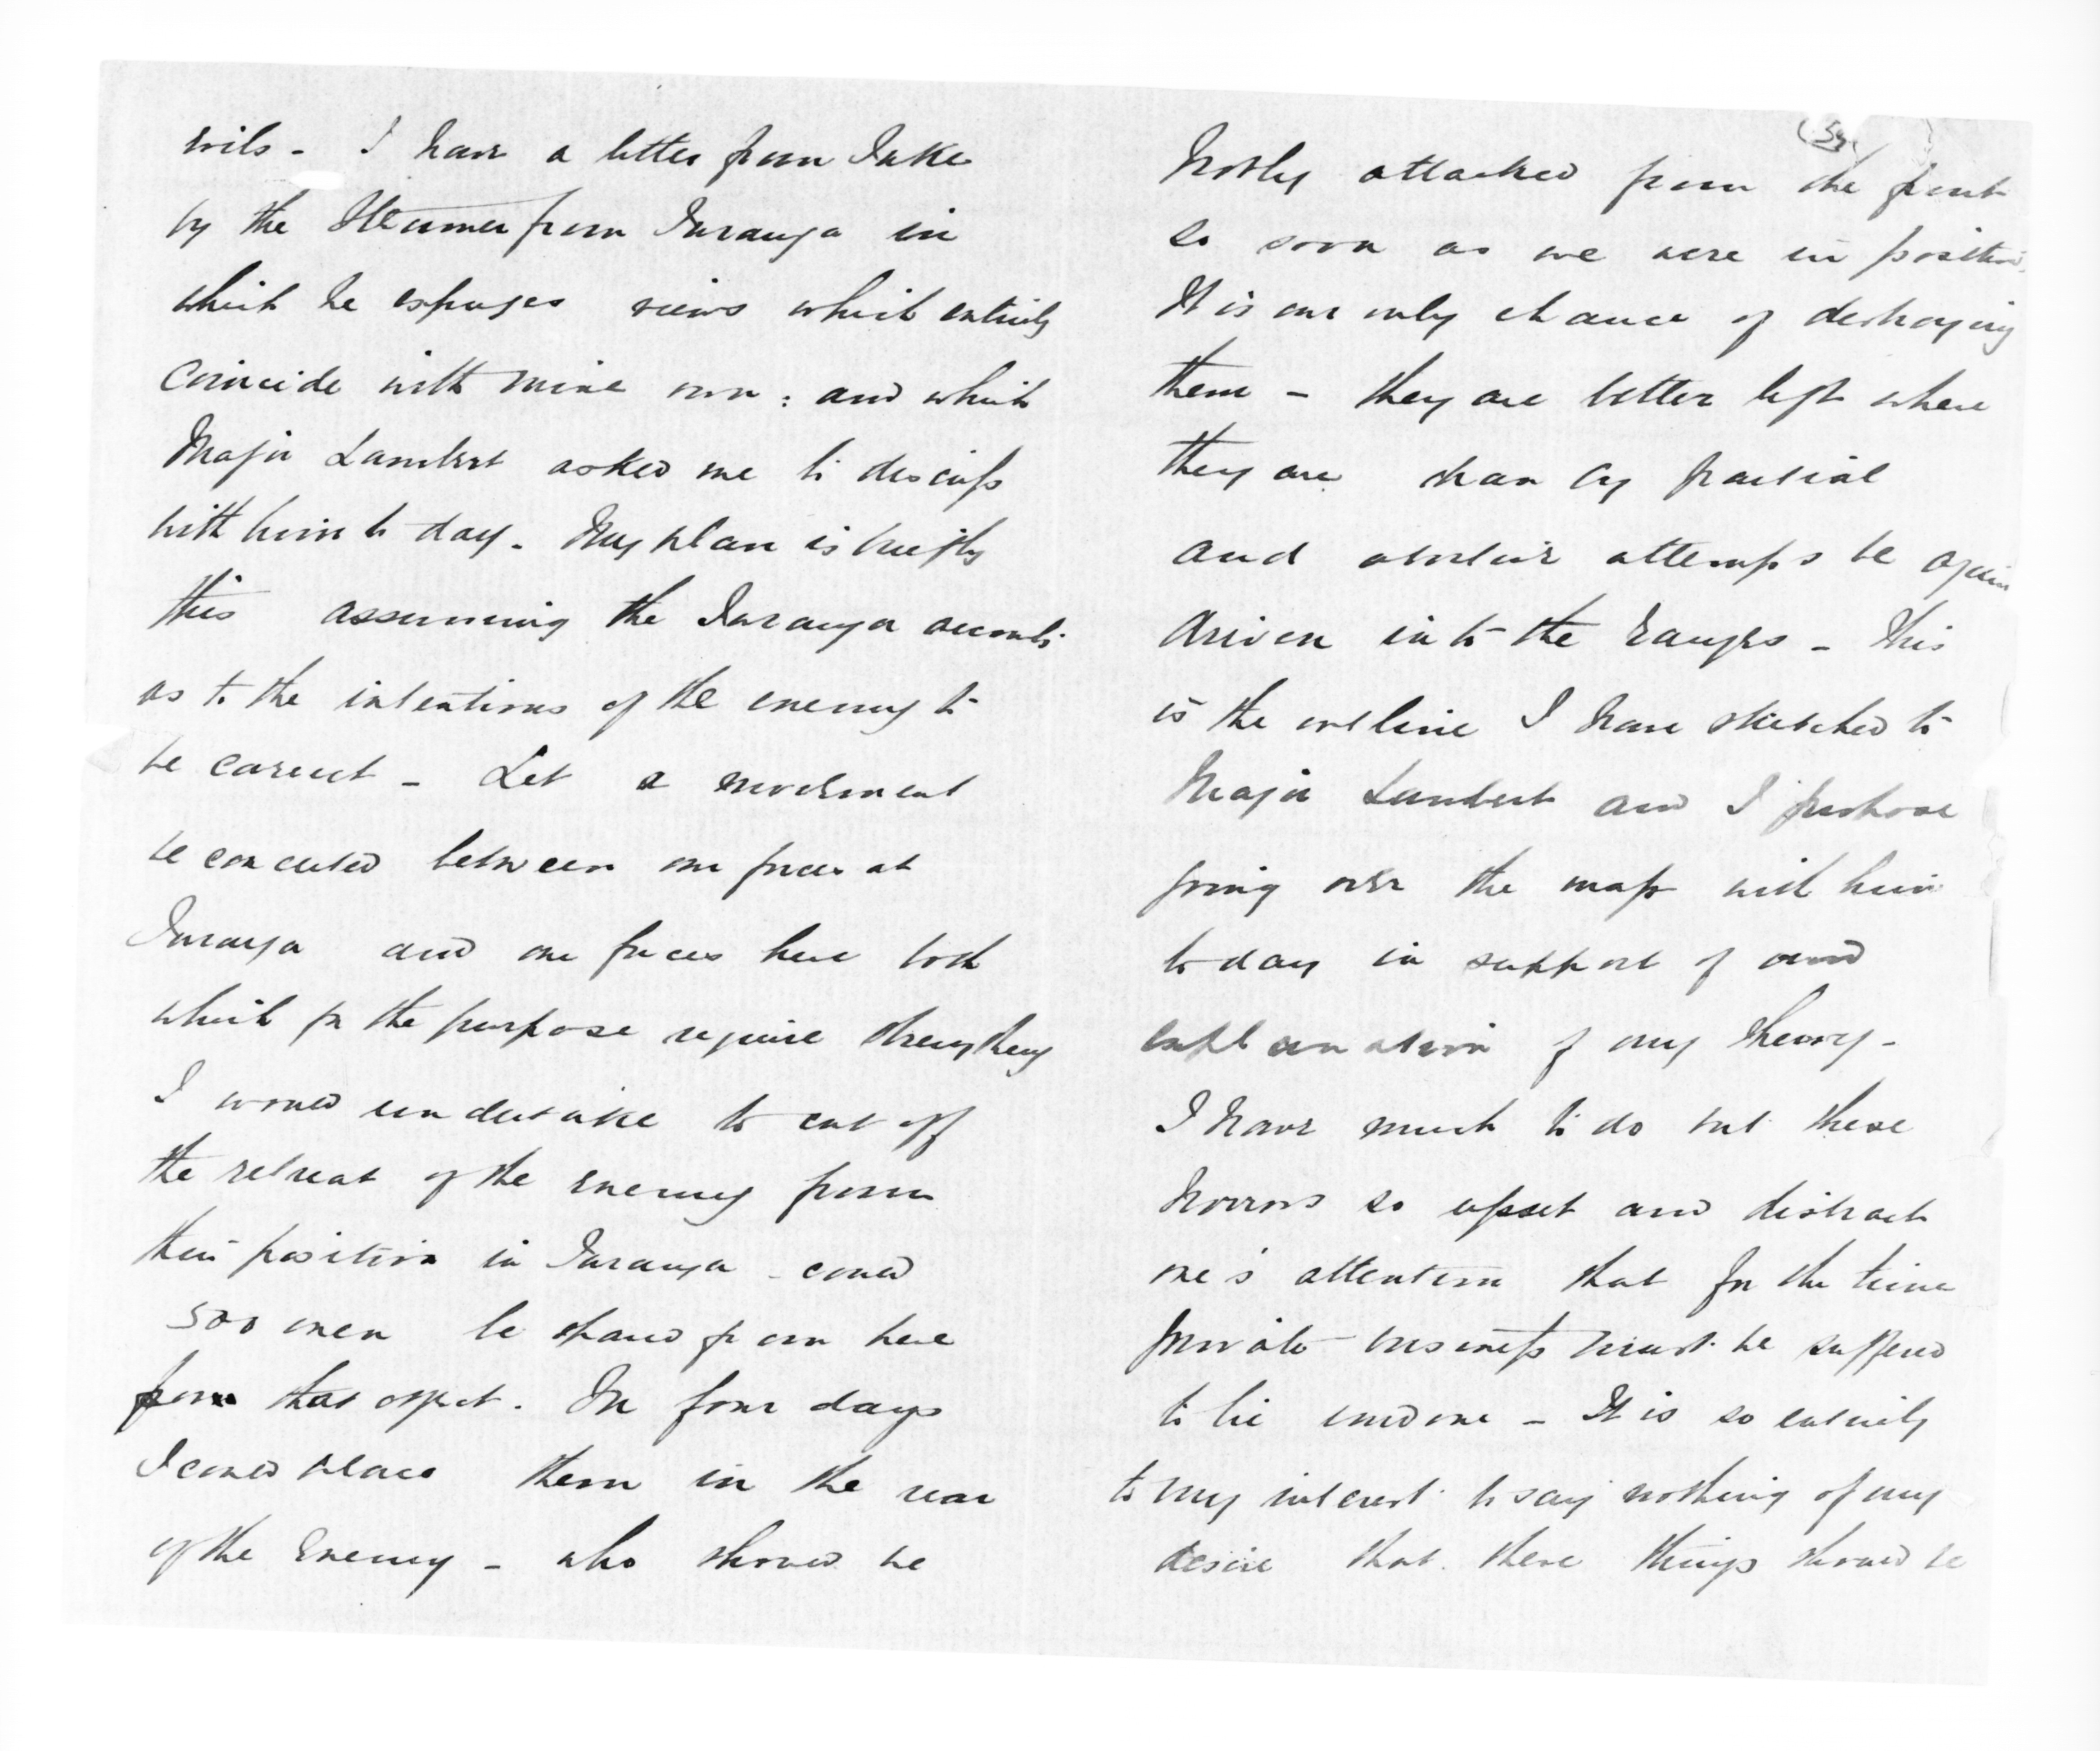 evils - I have a letter from Tuke
by the Steamer from Turanga in
which he expresses views which entirely
coincide with mine own: and which
Major Lambert asked me to discuss
with him to day. My plan is briefly
this assuming the Turanga accounts
as to the intentions of the enemy to
be correct - Let a movement
be concerted between our forces at
Turanga and our forces here both
which for the purpose require strengthening
I would undertake to cut off
the retreat of the enemy from
their position in Turanga - could
500 men be spared from here
for that object. In four days
I could place them in the rear
of the Enemy - who should be
hotly attacked from the front
so soon as we were in position.
It is our only chance of destroying
them - they are better left where
they are than by partial
and abortive attempts be again
driven into the ranges - This
is the outline I have sketched to
Major Lambert and I purpose
going over the map with him
to day in support of and
explanation of my theory -
I have much to do but these
horrors so upset and distract
one's attention that for the time
private business must be suffered
to lie undone - It is so entirely
to my interest to say nothing of my
desire that these things should be